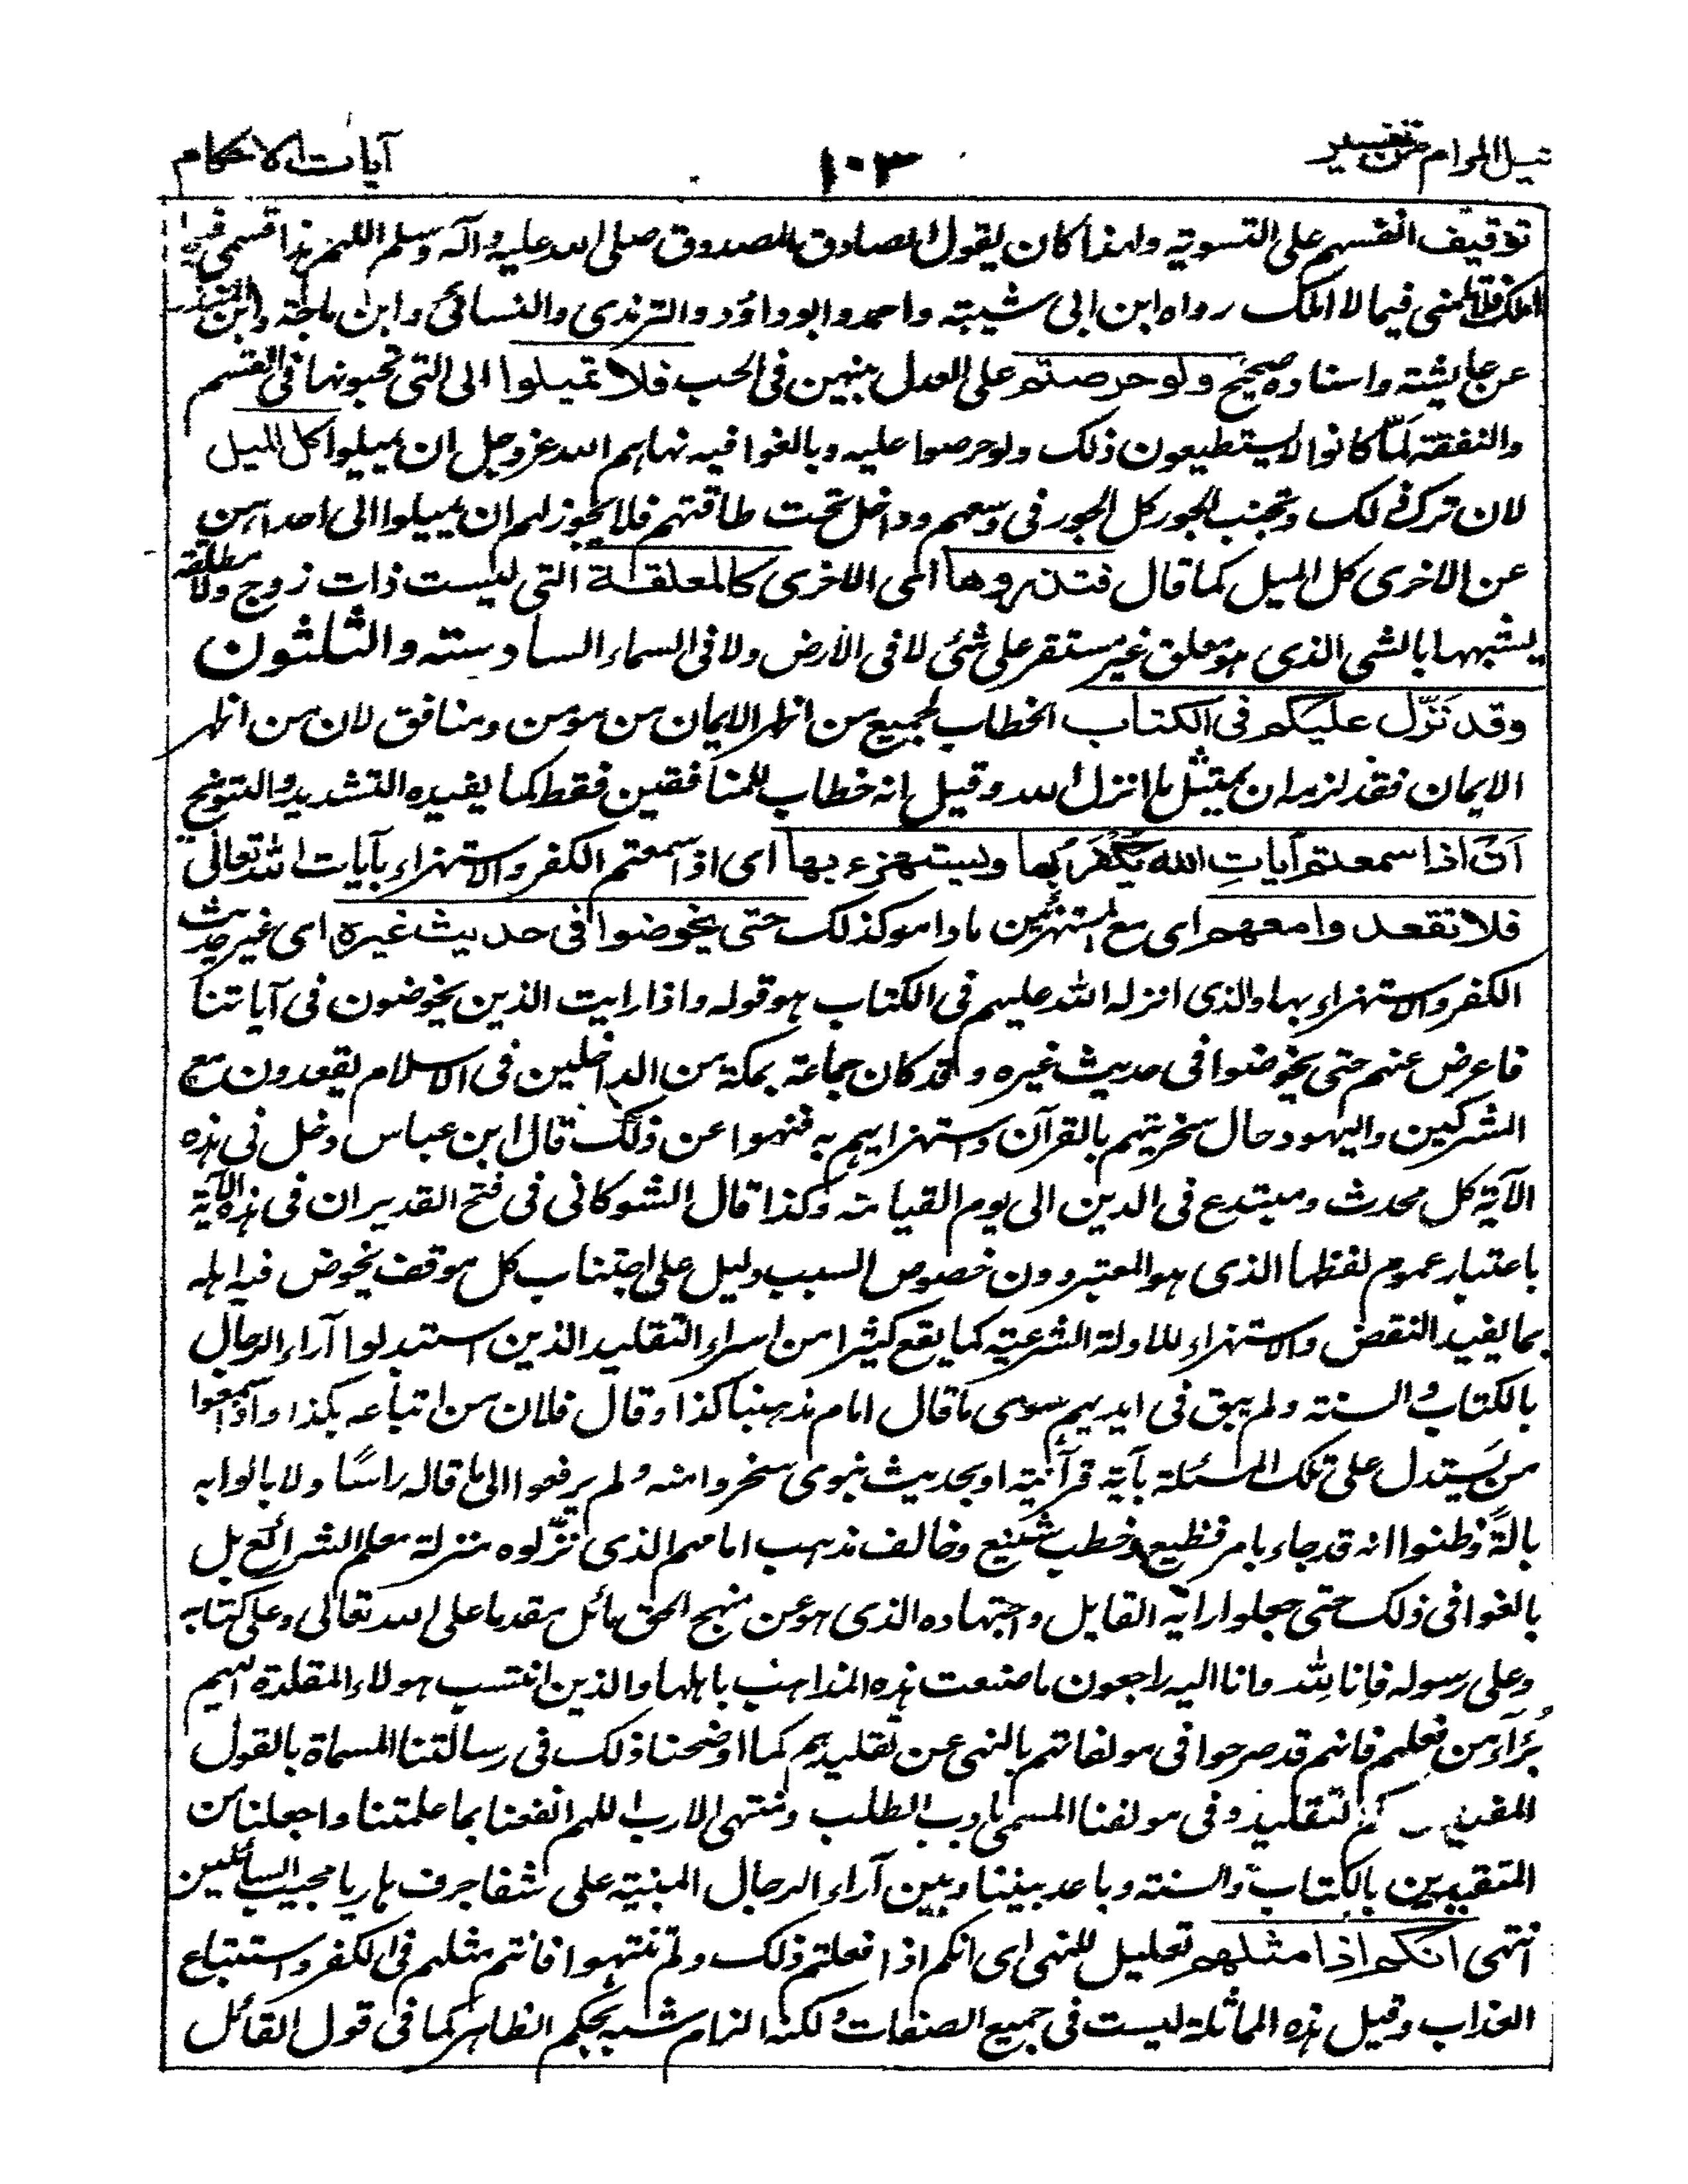 نيل المرام من تفسير ١٠٣ آيات الاحكام
توقيف انفسهم على التسوية ولهذا كان يقول الصادق المصدوق صلى الله عليه وآله وسلم اللهم هذا قسمى فيما
املك فلا تلمنى فيما لا املك رواه ابن ابى شيبة واحمد وابو داؤد والترمذى والنسائى وابن ماجة وابن المنذر
عن عايشة واسناده صحيح ولو حرصتم على العدل بينهن فى الحب فلا تميلوا الى التى تحبونها فى القسم
والنفقة لمّا كانوا لا يستطيعون ذلك ولو حرصوا عليه وبالغوا فيه نهاهم الله عز وجل ان يميلوا كل الميل
لان ترك ذلك وتجنب الجور كل الجور فى وسعهم وداخل تحت طاقتهم فلا يجوز لهم ان يميلوا الى احدا هن
عن الاخرى كل الميل كما قال فتذروها اى الاخرى كالمعلقة التى ليست ذات زوج ولا مطلقة
يشبهها بالشى الذى هو معلق غير مستقر على شئ لا فى الارض ولا فى السماء السادسة والثلثون
وقد نَزّل عليكم فى الكتاب الخطاب لجميع من اظهر الايمان من مؤمن ومنافق لان من اظهر
الايمان فقد لزمه ان يمتثل ما انزل الله وقيل انه خطاب للمنافقين فقط كما يفيده التشديد والتوبيخ
اَنْ اذا سمعتم آياتِ الله يُكْفَرُ بها ويستهزء بها اى اذا سمعتم الكفر والاستهزاء بآيات الله تعالى
فلا تقعدوا معهم اى مع المستهزئين ما داموا كذلك حتى يخوضوا فى حديث غيره اى غير حديث
الكفر والاستهزاء بها والذى انزله الله عليهم فى الكتاب هو قوله واذا رايت الذين يخوضون فى آياتنا
فاعرض عنهم حتى يخوضوا فى حديث غيره وقد كان جماعة بمكة من الداخلين فى الاسلام يقعدون مع
المشركين واليهود حال سخريتهم بالقرآن واستهزايهم به فنهوا عن ذلك قال ابن عباس دخل فى هذه
الآية كل محدث ومبتدع فى الدين الى يوم القيامة وكذا قال الشوكانى فى فتح القدير ان فى هذه الآية
باعتبار عموم لفظها الذى هو المعتبر دون خصوص السبب دليل على اجتناب كل موقف يخوض فيه اهله
بما يفيد النقض والاستهزاء للادلة الشرعية كما يقع كثيرا من اسراء التقليد الذين استبدلوا آراء الرجال
بالكتاب والسنة ولم يبق فى ايديهم سوى ما قال امام مذهبنا كذا وقال فلان من اتباعه بكذا واذا سمعوا
من يَستدل على تلك المسئلة بآية قرآنية او بحديث نبوى سخروا منه ولم يرفعوا الى ما قاله راسًا ولا بالوا به
بالةً وظنوا انه قد جاء بامر فظيع وخطب شنيع وخالف مذهب امامهم الذى نزّلوه منزلة معلم الشرائع بل
بالغوا فى ذلك حتى جعلوا رايه القايل واجتهاده الذى هو عن منهج الحق مائل مقدما على الله تعالى وعلى كتابه
وعلى رسوله فانا لله وانا اليه راجعون ما صنعت هذه المذاهب باهلها والذين انتسب هولاء المقلدة اليهم
بُرَآءُ من فعلهم فانهم قد صرحوا فى مولفاتهم بالنهى عن تقليدهم كما اوضحنا ذلك فى رسالتنا المسماة بالقول
المفيد التقليد وفى مولفنا المسمى بادب الطلب ومنتهى الارب اللهم انفعنا بما علمتنا واجعلنا من
المتقيدين بالكتاب والسنة وباعد بيننا وبين آراء الرجال المبنية على شفا جرف هار يا مجيب السائلين
انتهى انكم اذا مثلهم تعليل للنهى اى انكم اذا فعلتم ذلك ولم تنتهوا فانتم مثلهم فى الكفر واستتباع
العذاب وقيل هذه المماثلة ليست فى جميع الصفات ولكنه الزام شبه بحكم الظاهر كما فى قول القائل